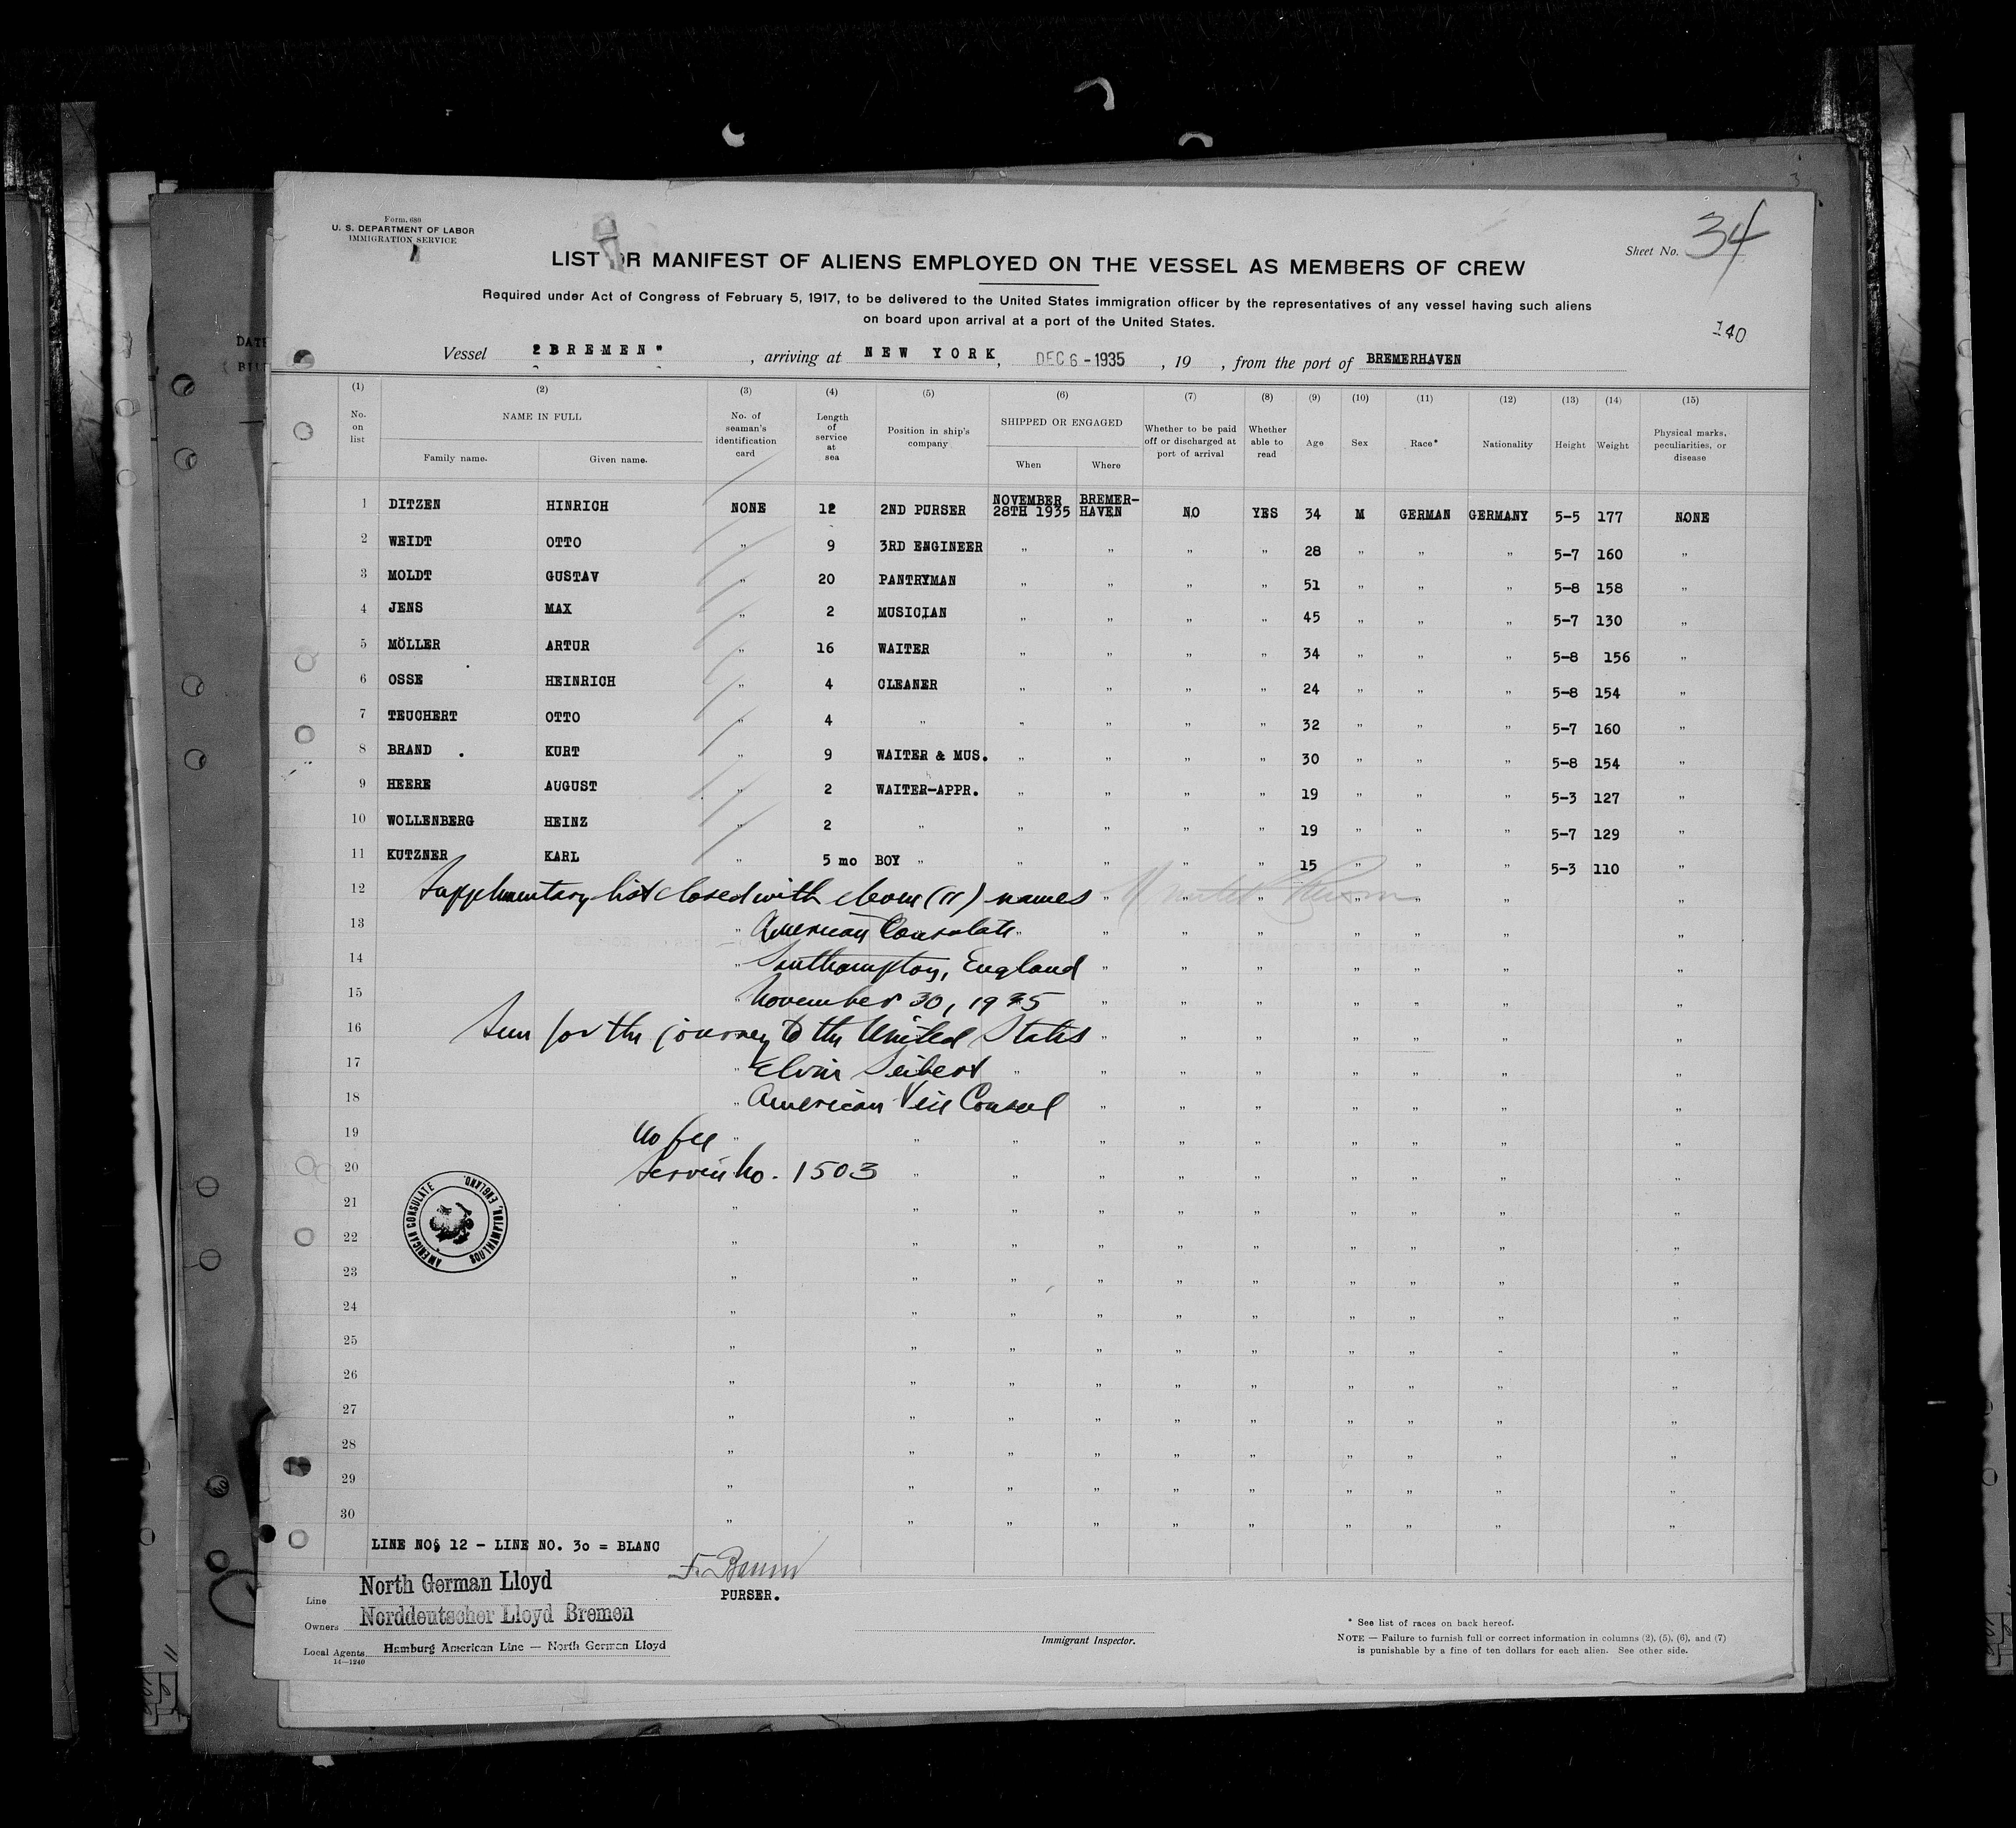 Form. 688
U. S. DEPARTMENT OF LABOR
IMMIGRATION SERVICE
Sheet No. 34
LIST OR MANIFEST OF ALIENS EMPLOYED ON THE VESSEL AS MEMBERS OF CREW
Required under Act of Congress of February 5, 1917, to be delivered to the United States immigration officer by the representatives of any vessel having such aliens
on board upon arrival at a port of the United States.
140
Vessel "BREMEN", arriving at NEW YORK, DEC 6 - 1935, 19 , from the port of BREMERHAVEN
(1) (2) (3) (4) (5) (6) (7) (8) (9) (10) (11) (12) (13) (14) (15)
No. on list NAME IN FULL Family name. Given name. No. of seaman's identification card Length of service at sea Position in ship's company SHIPPED OR ENGAGED When Where Whether to be paid off or discharged at port of arrival Whether able to read Age Sex Race* Nationality Height Weight Physical marks, peculiarities, or disease
1 DITZEN HINRICH NONE 12 2ND PURSER NOVEMBER 28TH 1935 BREMER-HAVEN NO YES 34 M GERMAN GERMANY 5-5 177 NONE
2 WEIDT OTTO " 9 3RD ENGINEER " " " " 28 " " " 5-7 160 "
3 MOLDT GUSTAV " 20 PANTRYMAN " " " " 51 " " " 5-8 158 "
4 JENS MAX " 2 MUSICIAN " " " " 45 " " " 5-7 130 "
5 MÖLLER ARTUR " 16 WAITER " " " " 34 " " " 5-8 156 "
6 OSSE HEINRICH " 4 CLEANER " " " " 24 " " " 5-8 154 "
7 TEUCHERT OTTO " 4 " " " " " 32 " " " 5-7 160 "
8 BRAND . KURT " 9 WAITER & MUS. " " " " 30 " " " 5-8 154 "
9 HEERE AUGUST " 2 WAITER-APPR. " " " " 19 " " " 5-3 127 "
10 WOLLENBERG HEINZ " 2 " " " " " 19 " " " 5-7 129 "
11 KUTZNER KARL " 5 mo BOY " " " " " 15 " " " 5-3 110 "
12 Supplementary list closed with eleven (11) names " " " " " " "
13 " American Consulate " " " " " " " "
14 " Southampton, England " " " " " " "
15 " November 30, 1935 " " " " " " "
16 Seen for the journey to the United States " " " " " " "
17 " Elvin Seibert " " " " " " " "
18 " American Vice Consul " " " " " " "
19 No fee " " " " " " " " " "
20 Service No. 1503 " " " " " " " " "
21 " " " " " " " " " "
22 " " " " " " " " " "
23 " " " " " " " " " "
24 " " " " " " " " " "
25 " " " " " " " " " "
26 " " " " " " " " " "
27 " " " " " " " " " "
28 " " " " " " " " " "
29 " " " " " " " " " "
30 " " " " " " " " " "
AMERICAN CONSULATE SOUTHAMPTON, ENGLAND.
LINE NO. 12 - LINE NO. 30 = BLANC
PURSER.
Line North German Lloyd
Owners Norddeutscher Lloyd Bremen
Local Agents Hamburg American Line — North German Lloyd
14—1240
Immigrant Inspector.
* See list of races on back hereof.
NOTE — Failure to furnish full or correct information in columns (2), (5), (6), and (7)
is punishable by a fine of ten dollars for each alien. See other side.